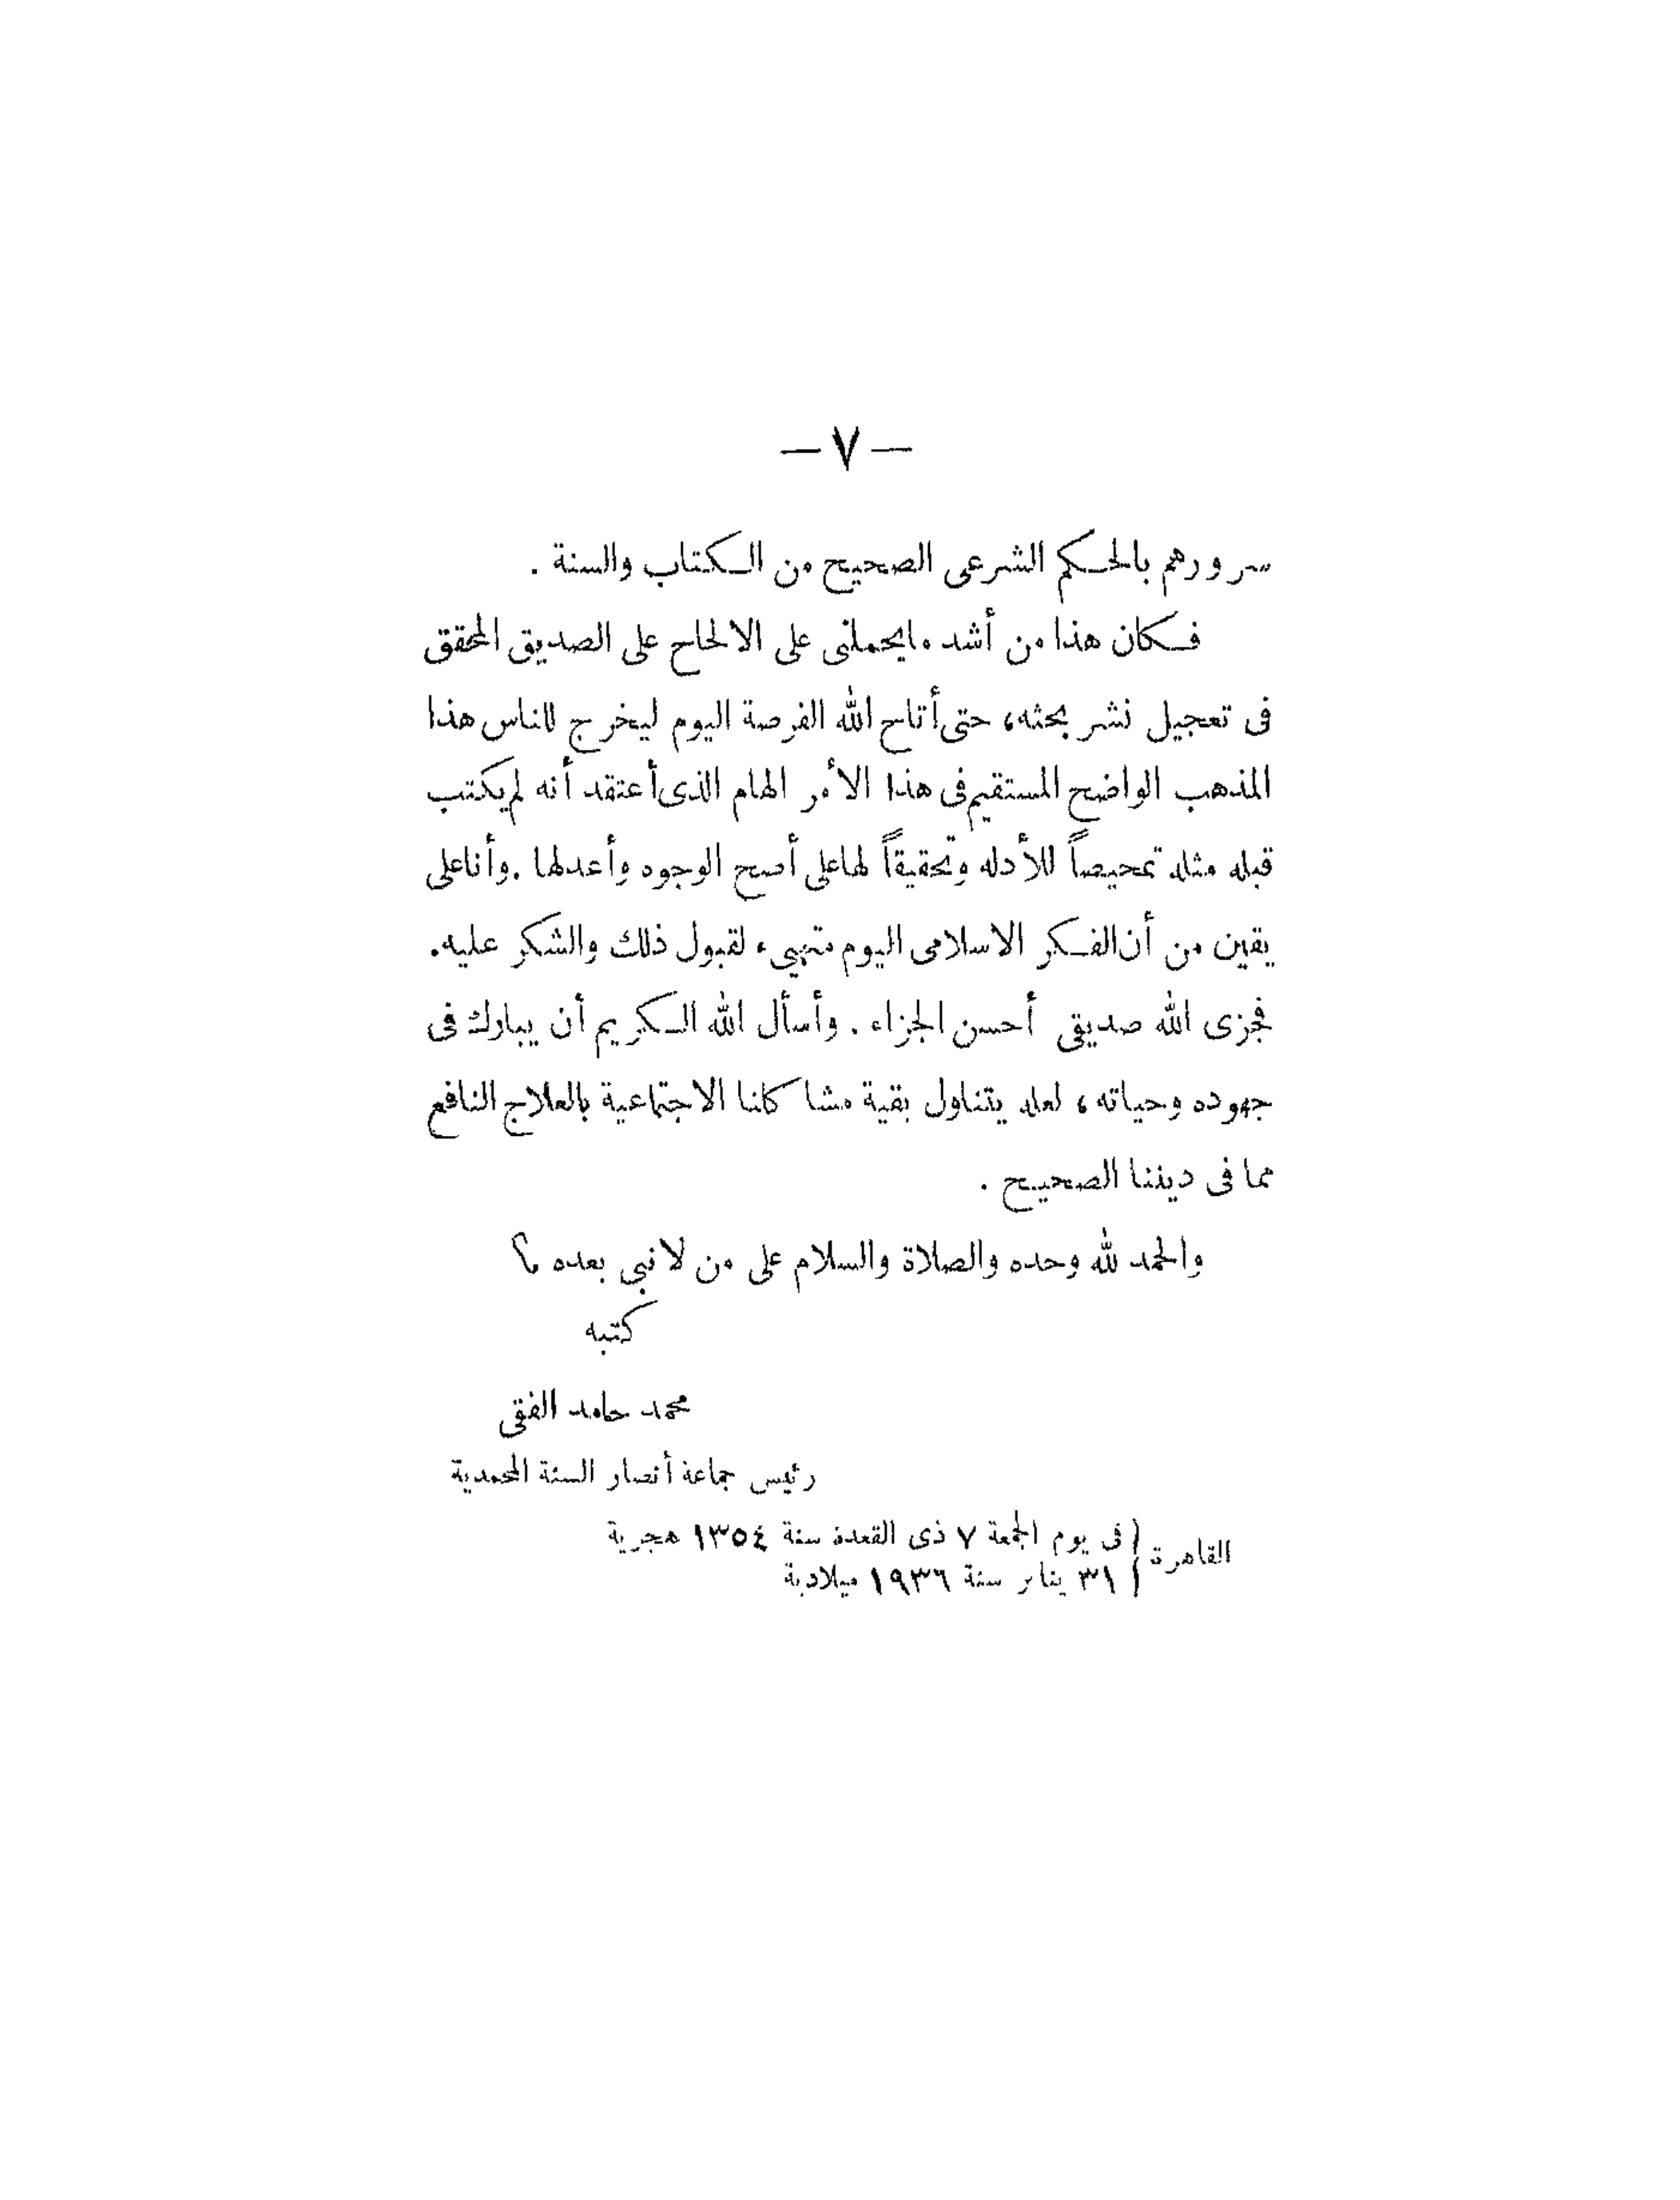 — ٧ —
سرورهم بالحكم الشرعى الصحيح من الكتاب والسنة .
فكان هذا من أشد ما يحملنى على الالحاح على الصديق المحقق
فى تعجيل نشر بحثه، حتى أتاح الله الفرصة اليوم ليخرج للناس هذا
المذهب الواضح المستقيم فى هذا الأمر الهام الذى أعتقد أنه لم يكتب
قبله مثله تمحيصاً للأدله وتحقيقاً لها على أصح الوجوه وأعدلها . وأنا على
يقين من أن الفكر الاسلامى اليوم متهيىء لقبول ذلك والشكر عليه.
فجزى الله صديقى أحسن الجزاء . وأسأل الله الكريم أن يبارك فى
جهوده وحياته ، لعله يتناول بقية مشاكلنا الاجتماعية بالعلاج النافع
مما فى ديننا الصحيح .
والحمد لله وحده والصلاة والسلام على من لا نبي بعده ؟
كتبه
محمد حامد الفقى
رئيس جماعة أنصار السنة المحمدية
القاهرة ( فى يوم الجمعة ٧ ذى القعدة سنة ١٣٥٤ هجرية
( ٣١ يناير سنة ١٩٣٦ ميلادية